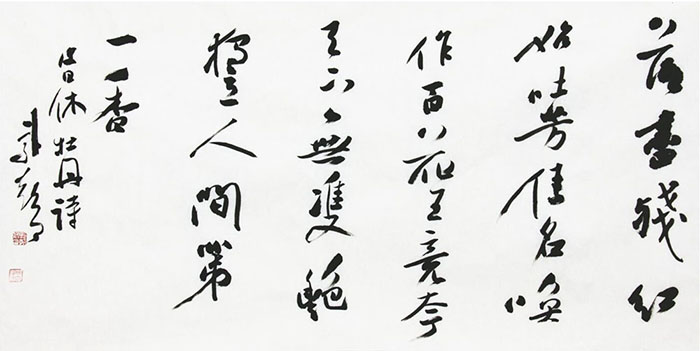 落盡殘紅
始吐芳佳名喚
作百花王竞夸
天下無雙艷
獨立人間第
一香
皮日休牡丹詩